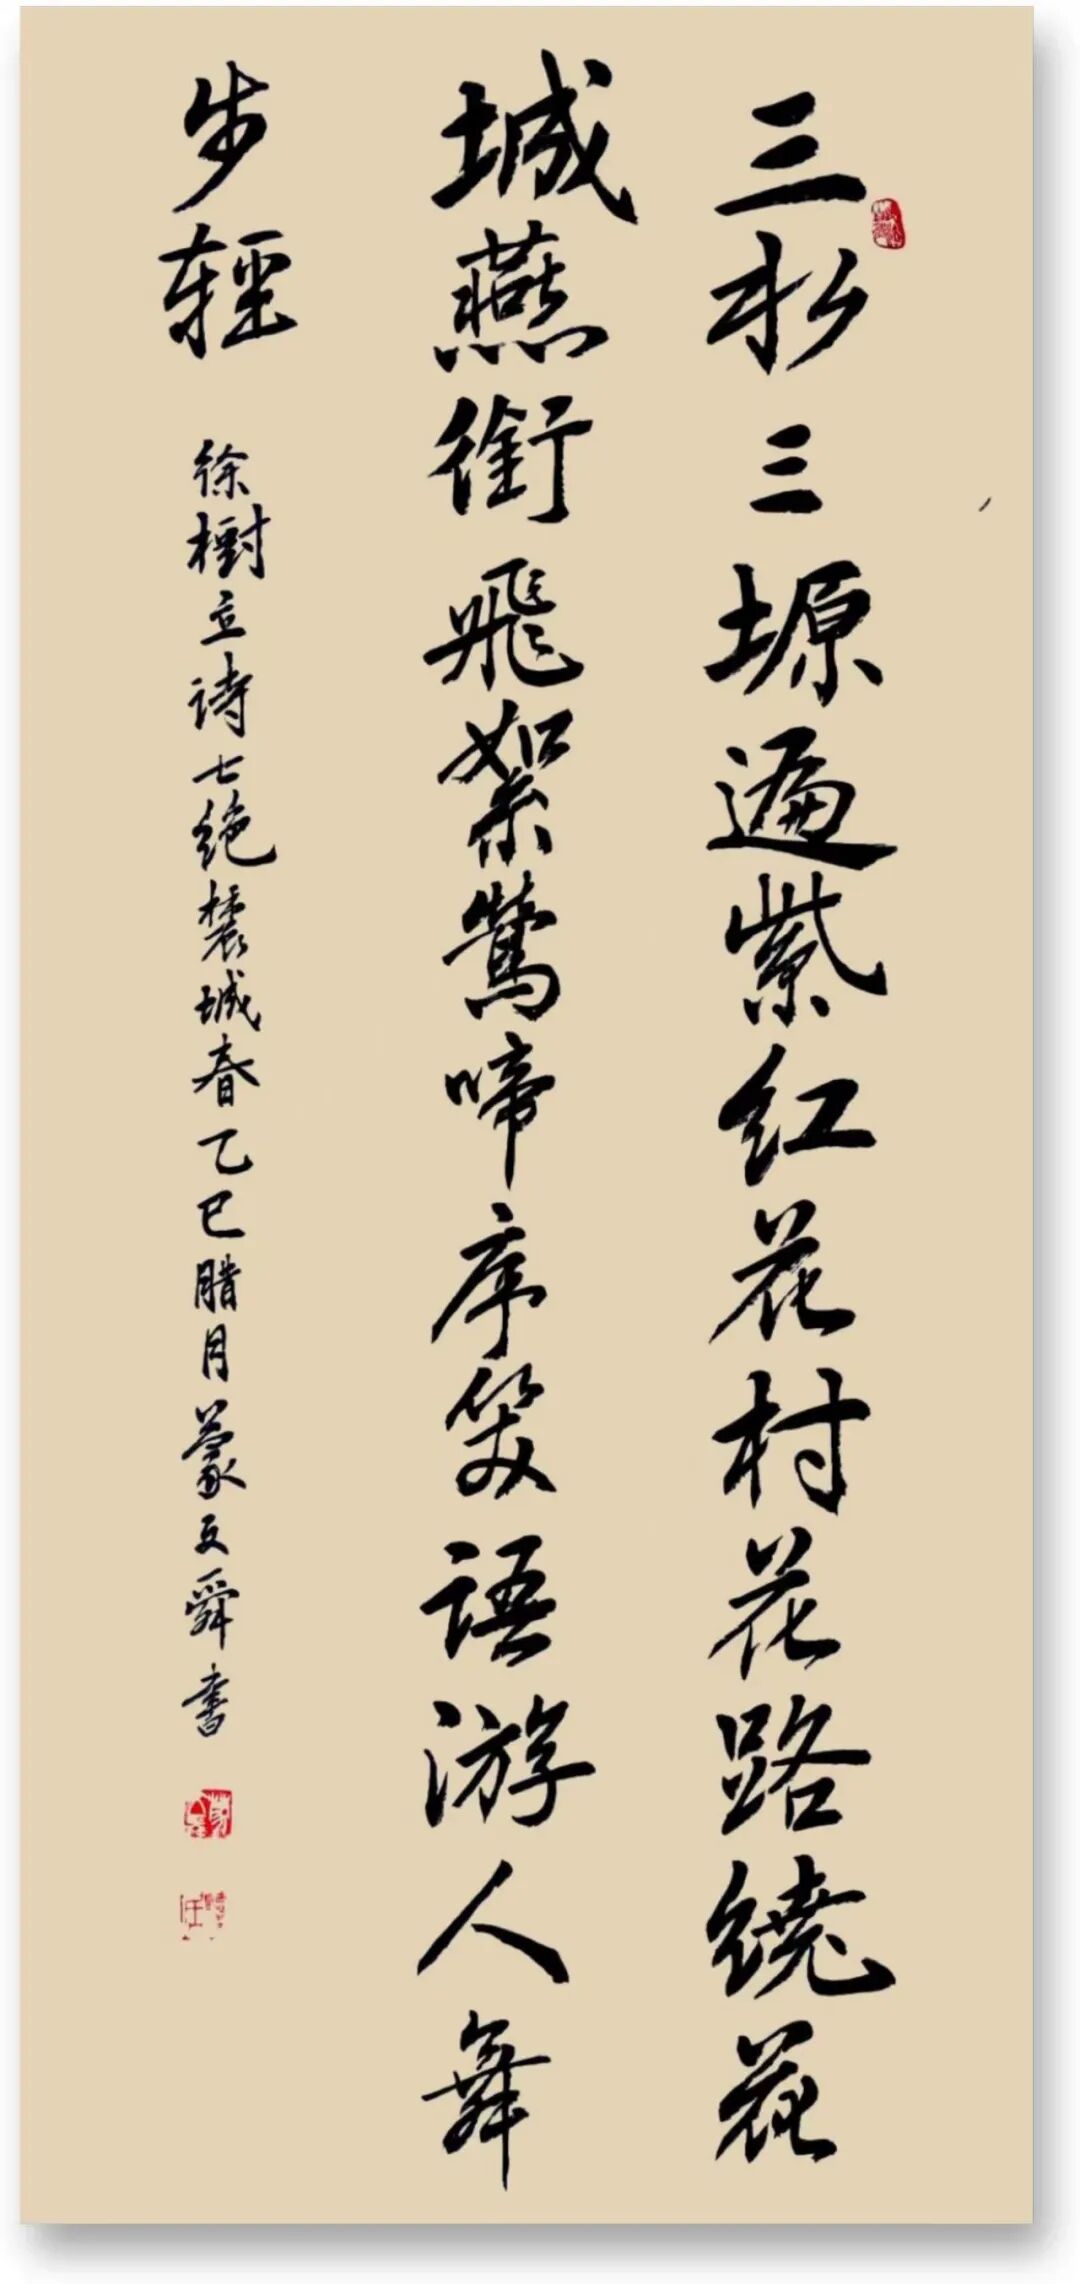 三水三塬遍紫红花村花路绕花
城燕銜飛絮鶯啼序笑语游人舞
步輕
徐樹立诗七绝農城春乙巳腊月蒙文舜書